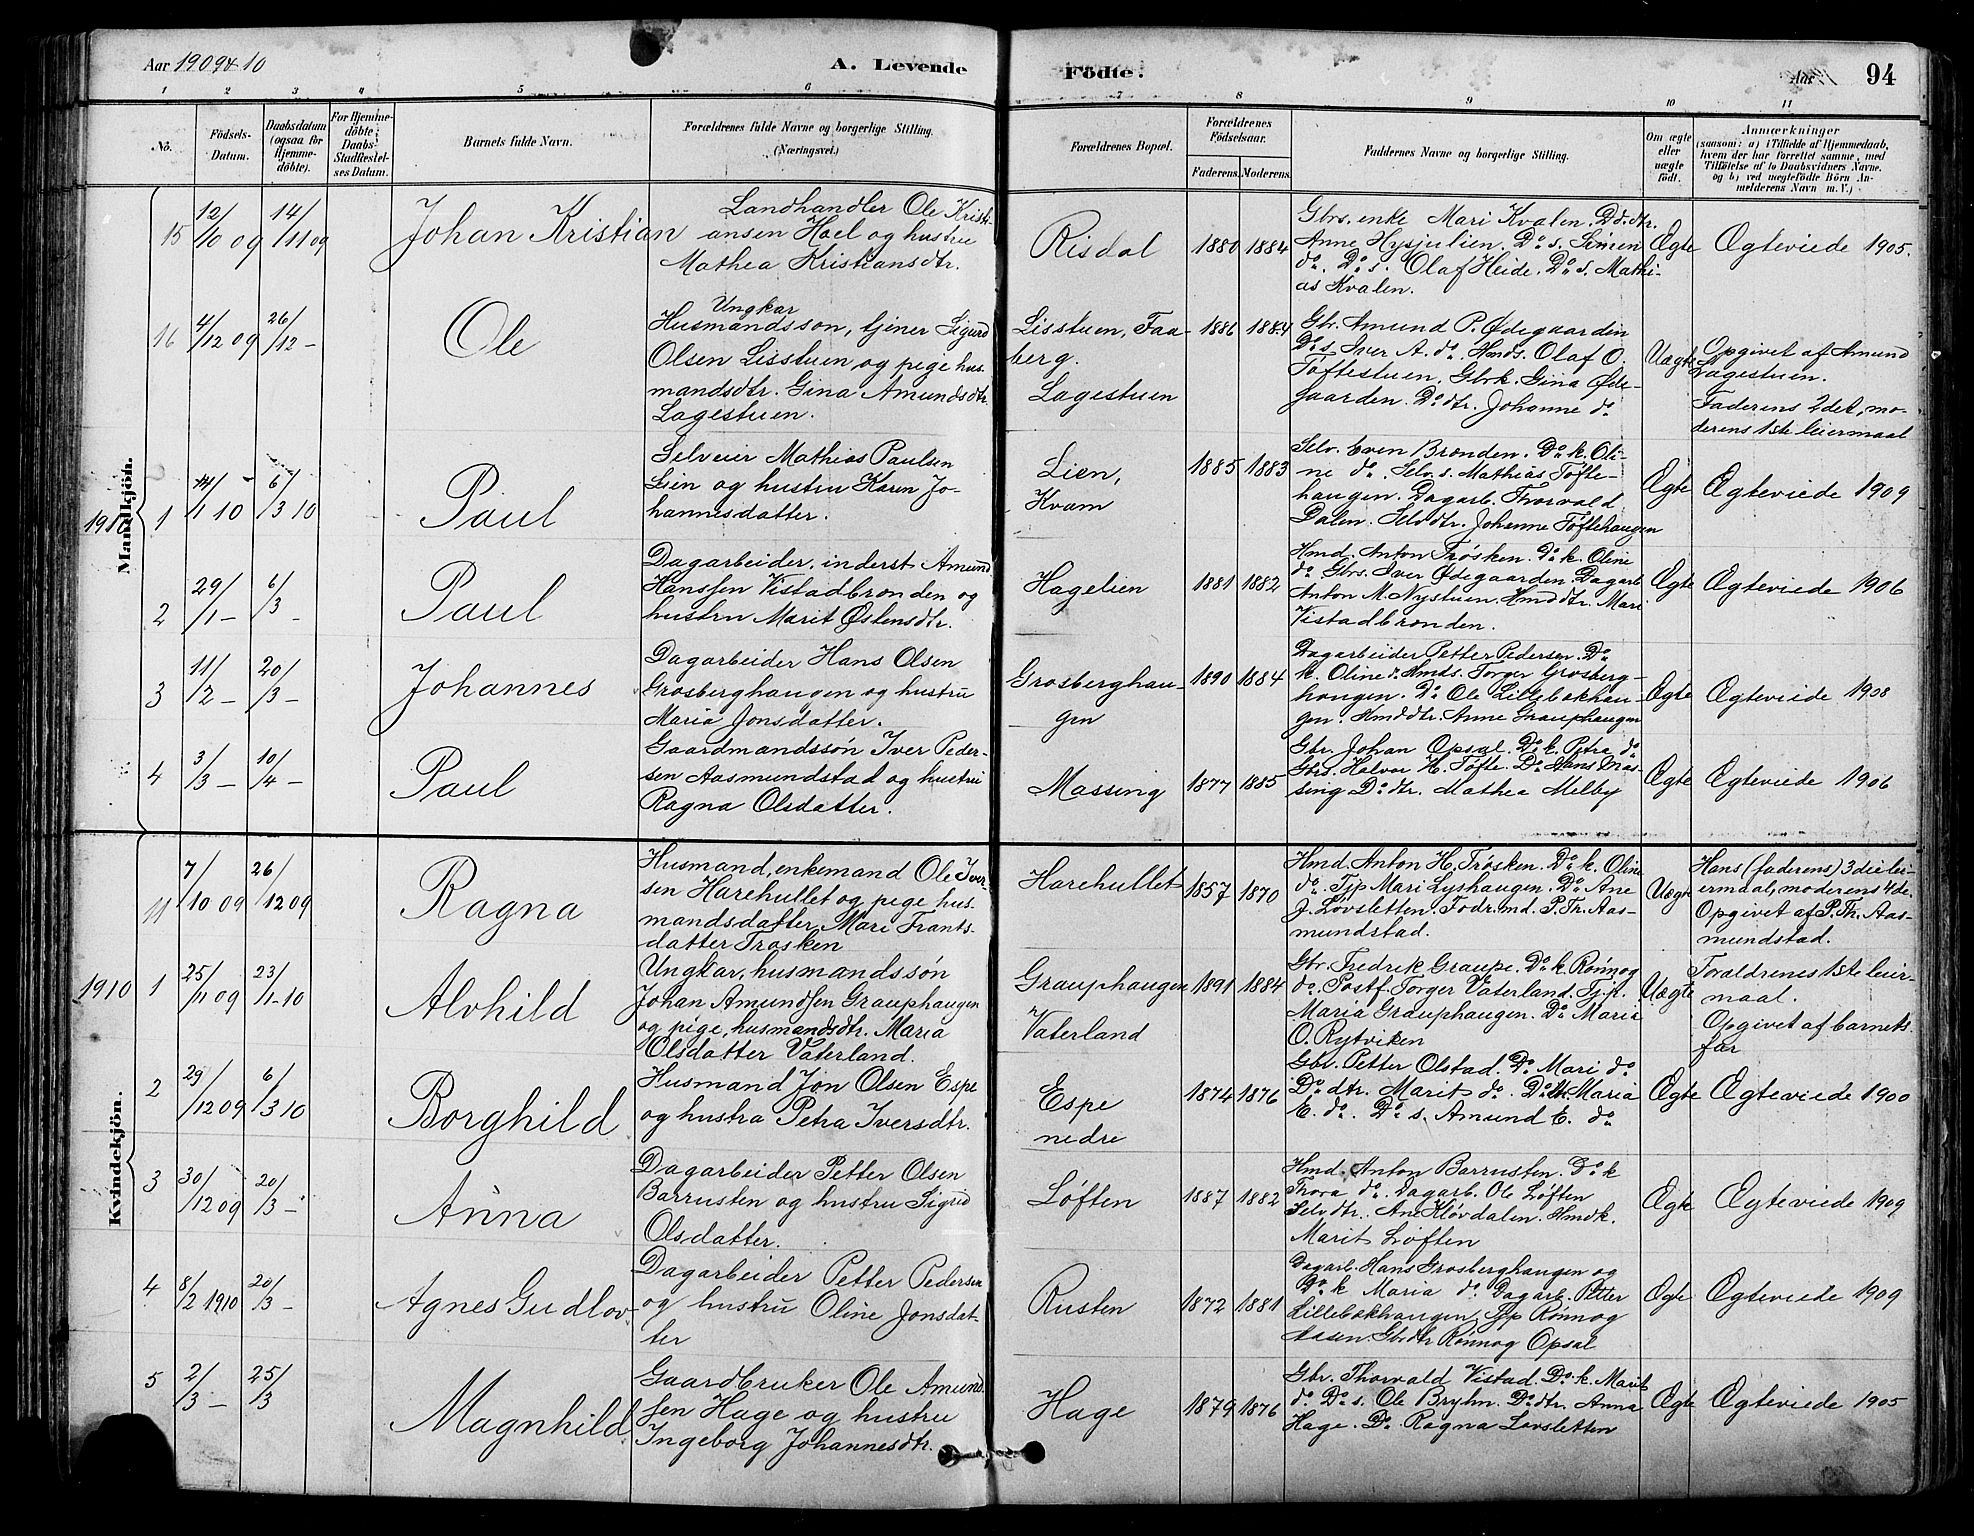 Aar 1909 & 10
A. Levende
Födte.
Aar
94
1 2 3 4 5 6 7 8 9 10 11
No.
Födsels-
Datum.
Daabsdatum
(ogsaa for
Hjemme-
döbte).
For Hjemme-
döbte;
Daabs-
Stadfæstel-
ses Datum.
Barnets fulde Navn.
Forældrenes fulde Navne og borgerlige Stilling.
(Næringsvei.)
Forældrenes Bopæl.
Forældrenes
Födselsaar.
Faderens. Moderens.
Faddernes Navne og borgerlige Stilling.
Om ægte
eller
uægte
födt.
Anmærkninger
(saasom: a) i Tilfælde af Hjemmedaab,
hvem der har forrettet samme, med
Tilföielse af to Daabsvidners Navne.
og b) ved uægtefödte Börn An-
melderens Navn m. V.)
Mandkjön.
15
12/10 09
14/11 09
Johan Kristian
Landhandler Ole Kristi-
ansen Hoel og hustru
Mathea Kristiansdtr.
Risdal
1880 1884
Gbrs. enke Mari Kvalen. Do. dtr.
Anne Hysjulien. Do s. Simen
do. Do s. Olaf Heide. Do s. Mathi-
as Kvalen.
Ægte
Ægteviede 1905.
16
4/12 09
26/12 –
Ole
Ungkar
Husmandssön, tjener Sigurd
Olsen Lisstuen og pige hus
mandsdtr. Gina Amundsdtr.
Lagestuen.
Lisstuen, Faa-
berg.
Lagestuen
1886 1884
Gbr. Amund P. Ødegaarden
Do s. Iver A. do. Hmds. Olaf O.
Toftestuen. Gbrk. Gina Øde-
gaarden. Do dtr. Johanne do
Uægte
Opgivet af Amund
Lagestuen.
Faderens 2det, mo-
derens 1ste leiermaal
1910
1
14/1 10
6/3 10
Paul
Selveier Mathias Paulsen
Lien og hustru Karen Jo-
hannesdatter.
Lien,
Kvam
1885 1883
Selv. Even Brønden. Do k. Oli-
ne do. Selv. s. Mathias Tofte-
haugen. Dagarb. Thorvald
Dalen. Selv dtr. Johanne Toftehaugen
Ægte
Ægteviede 1909
2
29/1 –
6/3 –
Paul
Dagarbeider, inderst Amund
Hanssen Vistadbrønden og
hustru Marit Østensdtr.
Hagelien
1881 1882
Hmd. Anton Trøsken. Do k. Oline
do. Gbrs. Iver Ødegaarden. Dagarb
Anton M. Nystuen. Hmddtr. Mari
Vistadbrønden.
Ægte
Ægteviede 1906
3
11/2 –
20/3 –
Johannes
Dagarbeider Hans Olsen
Grosberghaugen og hustru
Maria Jonsdatter.
Grosberghau-
gen
1890 1884
Dagarbeider Petter Pedersen. Do
k. Oline do. Hmds. Torger Grosberg-
haugen. Do Ole Lillebakhau-
gen. Hmddtr. Anne Grauphaugen
Ægte
Ægteviede 1908
4
3/3 –
10/4 –
Paul
Gaardmandssøn Iver Peder-
sen Aasmundstad og hustru
Ragna Olsdatter.
Massing
1877 1885
Gbr. Johan Opsal. Do k. Petra do
Gbrs. Halvor H. Tofte. Do Hans Mas-
sing Do dtr. Mathea Melby
Ægte
Ægteviede 1906
Kvindekjön.
11
7/10 09
26/12 09
Ragna
Husmand, enkemand Ole Iver-
sen Harehullet og pige hus
mandsdatter Mari Frants-
datter Trøsken
Harehullet
1857 1870
Hmd. Anton H. Trøsken. Do k. Oline
do. Tjp Mari Lyshaugen. Do Ane
J. Lovsletten. Fodr.md. P. Th. Aas-
mundstad.
Uægte
Hans (faderens) 3die lei-
ermaal, moderens 4de.
Opgivet af P. Th. Aas-
mundstad.
1910
1
25/11 09
23/1 - 10
Alvhild
Ungkar, husmandssön
Johan Amundsen Grauphaugen
og pige, husmandsdtr. Maria
Olsdatter Vaterland.
Grauphaugen
Vaterland
1891 1884
Gbr. Fredrik Graupe. Do k. Rönnog
do. Postf. Torger Vaterland. Tjp.
Maria Grauphaugen. Do Maria
O. Rytviken
Uægte
Foraldrenes 1ste leier-
maal.
Opgivet af barnets
far
2
29/12 09
6/3 10
Borghild
Husmand Jon Olsen Espe
og hustru Petra Iversdtr.
Espe
nedre
1874 1876
Gbr. Petter Olstad. Do Mari do
Do dtr. Marit do. Do Maria
E. do. Do s. Amund E. do
Ægte
Ægteviede 1900
3
30/12 09
20/3 –
Anna
Dagarbeider Petter Olsen
Barrusten og hustru Sigrid
Olsdatter.
Løften
1887 1882
Hmd. Anton Barrusten. Do k
Thora do. Dagarb. Ole Løften
Selv dtr. Ane Kløvdalen. Hmdk.
Marit Løften
Ægte
Ægteviede 1909
4
8/2 1910
20/3 –
Agnes Gudlov
Dagarbeider Petter Pedersen
og hustru Oline Jonsdat-
ter
Rusten
1872 1881
Dagarb. Hans Grosberghaugen og
Do k Maria do. Dagarb. Petter
Lillebakhaugen Tjp Rönnog
Aasen Gbrdtr Rönnog Opsal
Ægte
Ægteviede 1909
5
2/3 –
25/3
Magnhild
Gaardbruker Ole Amund-
sen Hage og hustru
Ingeborg Johannesdtr.
Hage
1879 1876
Gbr. Thorvald Vistad. Do k. Marit
do. Do s. Ole Bryhn. Do dtr. Anna
Hage. Do Ragna Lovsletten
Ægte
Ægteviede 1905